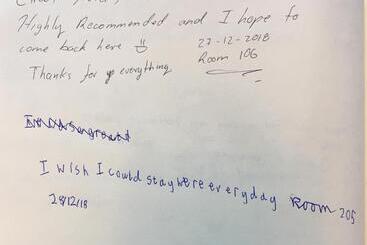 Highly Recommended and I hope to
come back here
27-12-2018
Room 106
Thanks for everything
I wish I could stay here everyday Room 205
28/12/18